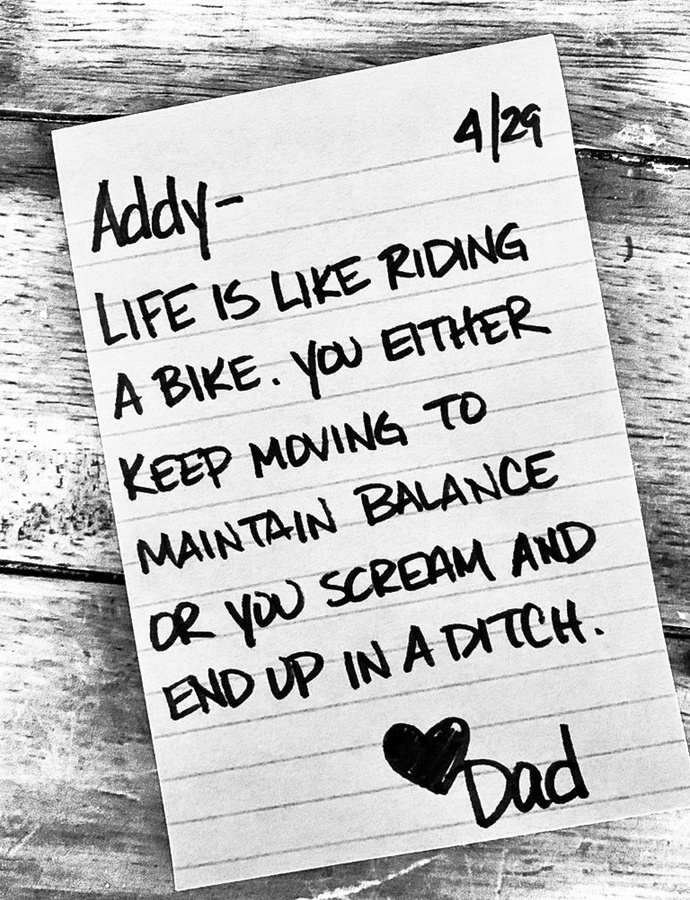 4/29
Addy-
LIFE IS LIKE RIDING
A BIKE. YOU EITHER
KEEP MOVING TO
MAINTAIN BALANCE
OR YOU SCREAM AND
END UP IN A DITCH.
♥ Dad